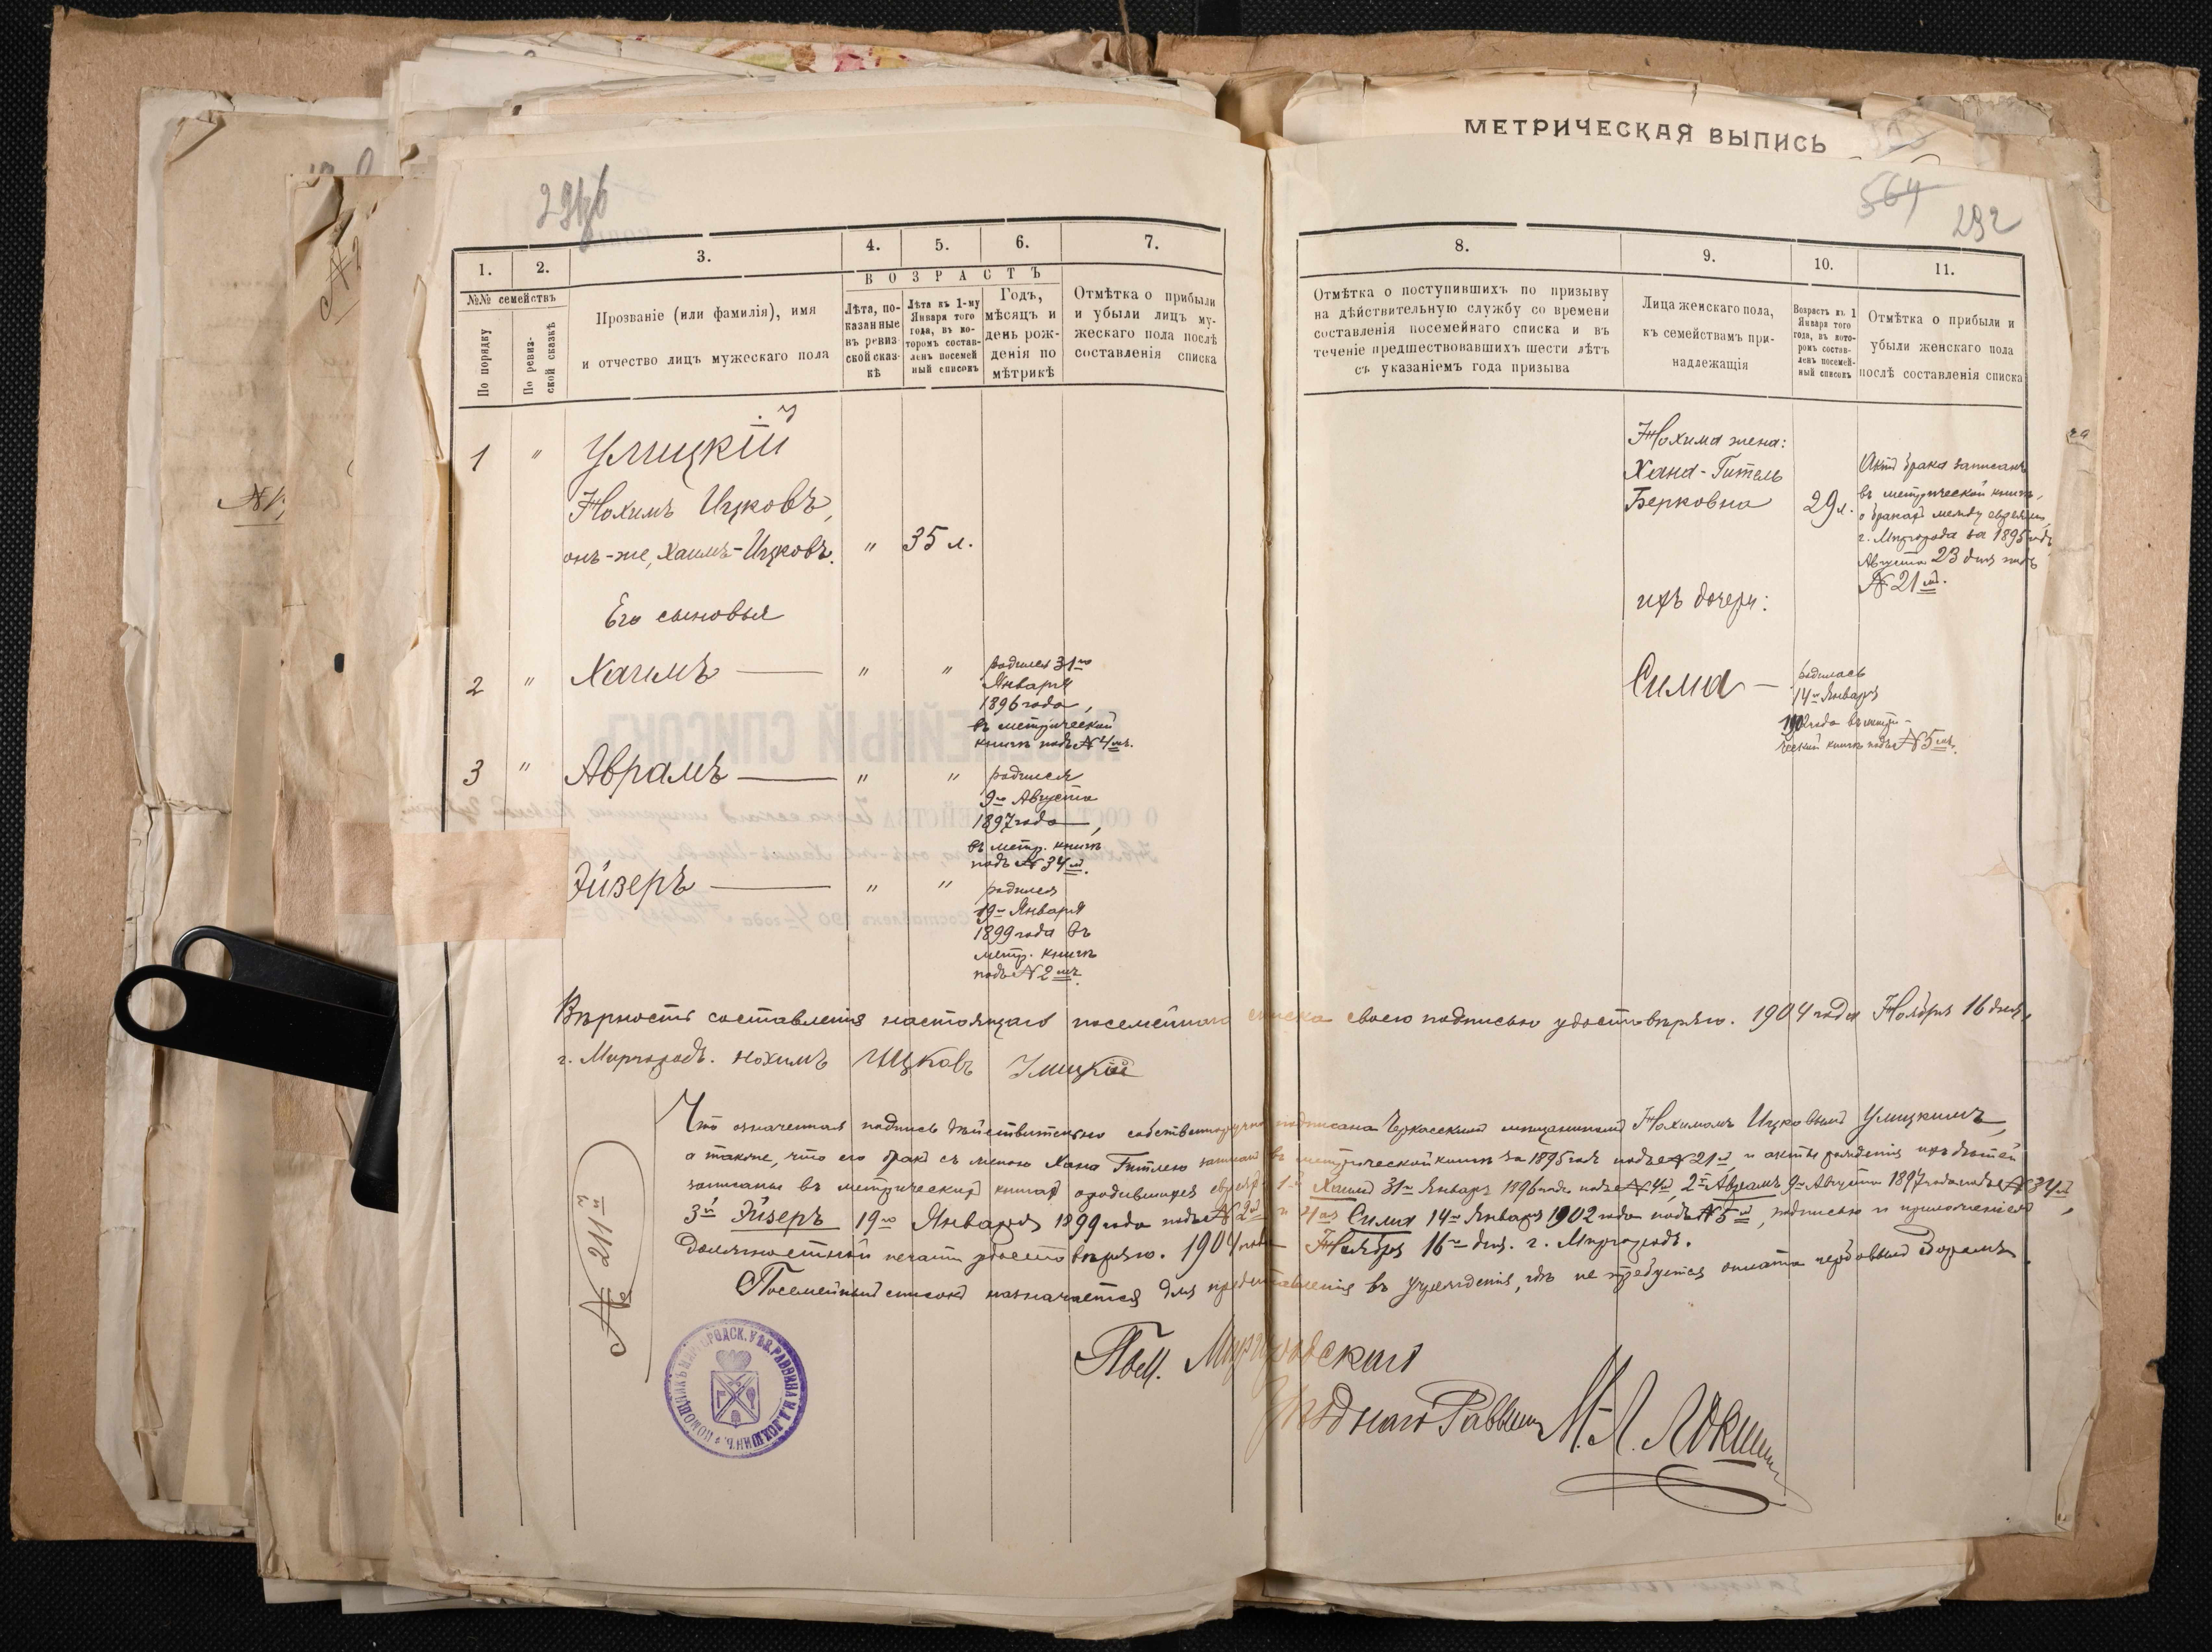 МЕТРИЧЕСКАЯ ВЫПИСЬ
564
292
1.
2.
3.
4.
5.
6.
7.
ВОЗРАСТЪ
№№ семействъ
По порядку
По ревиз-
ской сказкѣ
Прозваніе (или фамилія), имя
и отчество лицъ мужескаго пола
Лѣта, по-
казанные
въ ревиз
ской сказ-
кѣ
Лѣта къ 1-му
Января того
года, въ ко-
торомъ состав-
ленъ посемей
ный списокъ
Годъ,
мѣсяцъ и
день рож-
денія по
мѣтрикѣ
Отмѣтка о прибыли
и убыли лицъ му-
жескаго пола послѣ
составленія списка
8.
9.
10.
11.
Отмѣтка о поступившихъ по призыву
на дѣйствительную службу со времени
составленія посемейнаго списка и въ
теченіе предшествовавшихъ шести лѣтъ
съ указаніемъ года призыва
Лица женскаго пола,
къ семействамъ при-
надлежащія
Возрастъ къ 1
Января того
года, въ кото-
ромъ состав-
ленъ посемей-
ный списокъ
Отмѣтка о прибыли и
убыли женскаго пола
послѣ составленія списка
1 " Улицкій
Нохимъ Ицковъ,
онъ-же, Хаимъ-Ицковъ. " 35 л.
Его сыновья
2 " Хаимъ — " " родился 31го
Января
1896 года,
въ метрической
книгѣ подъ № 4мъ.
3 " Аврамъ — " " родился
9го Августа
1897 года,
въ метр. книгѣ
подъ № 34мъ.
Эйзеръ — " " родился
19го Января
1899 года въ
метр. книгѣ
подъ № 2мъ.
Нохима жена:
Хана-Гитель
Берковна 29 л.
Актъ брака записанъ
въ метрической книгѣ,
о бракахъ между евреями
г. Миргорода за 1895 годъ
Августа 23 дня подъ
№ 21мъ.
ихъ дочери:
Сима — родилась
14го Января
1902 года въ метри-
ческой книгѣ подъ № 5мъ.
Вѣрность составленія настоящаго посемейнаго списка своею подписью удостовѣряю. 1904 года Ноября 16 дня,
г. Миргородъ. Нохимъ Ицковъ Улицкій
Что означенная подпись дѣйствительно собственноручно подписана Черкасскимъ мѣщаниномъ Нохимомъ Ицковымъ Улицкимъ,
а также, что его бракъ съ женою Хана Гителею записанъ въ метрической книгѣ за 1895 годъ подъ № 21мъ, и акты рожденія ихъ дѣтей
записаны въ метрическихъ книгахъ о родившихся евреяхъ: 1й Хаимъ 31го Января 1896 года подъ № 4мъ, 2й Аврамъ 9го Августа 1897 года подъ № 34мъ,
3й Эйзеръ 19го Января 1899 года подъ № 2мъ и 4ая Сима 14го Января 1902 года подъ № 5мъ, подписью и приложеніемъ
должностной печати удостовѣряю. 1904 года Ноября 16го дня. г. Миргородъ.
Посемейный списокъ назначается для представленія въ учрежденія, гдѣ не требуется оплата гербовымъ сборомъ.
№ 211й
Пом. Миргородскаго
Уѣзднаго Раввина М. Л. Локшинъ
ПОМОЩНИКЪ МИРГОРОДСК. УѢЗ. РАВВИНА М. Л. ЛОКШИНЪ